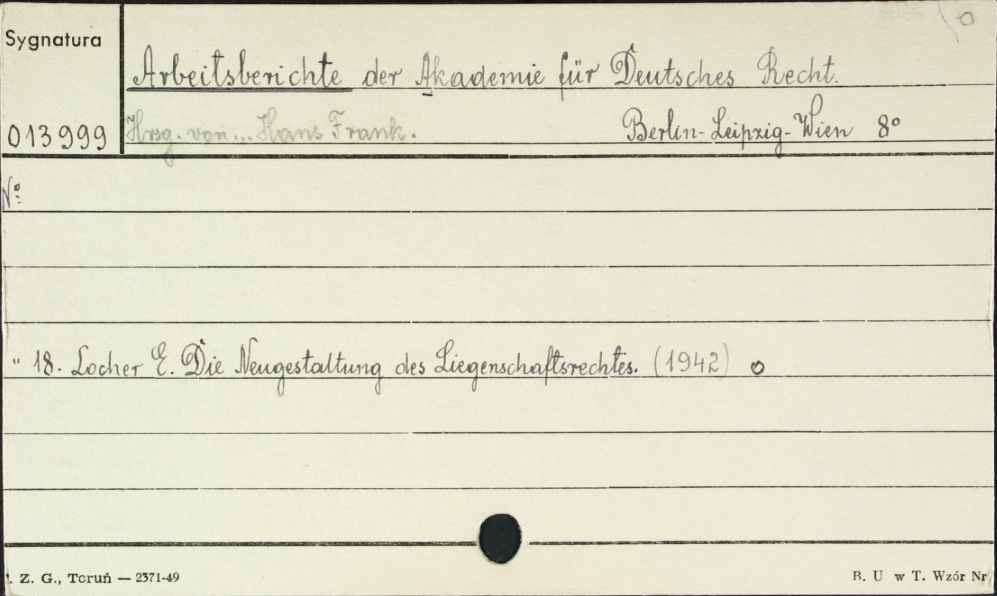 Sygnatura
Arbeitsberichte der Akademie für Deutsches Recht.
013999 Hrsg. von... Hans Frank. Berlin-Leipzig-Wien 8°
Nº
" 18. Locher E. Die Neugestaltung des Liegenschaftsrechtes. (1942) o
. Z. G., Toruń — 2371-49 B. U w T. Wzór Nr